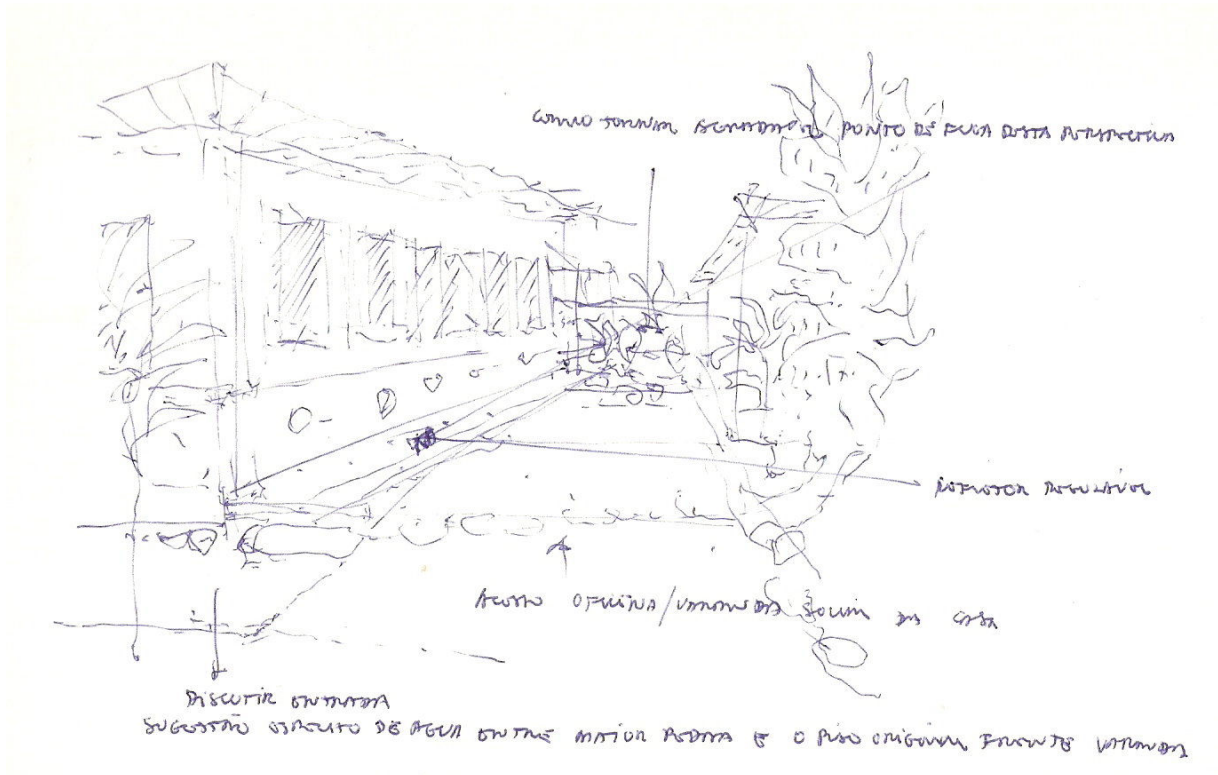 COMO TORNAR AGRADÁVEL PONTO DE FUGA DESTA PERSPECTIVA
REFLETOR REGULÁVEL
ACESSO OFICINA/VARANDA DA CASA
DISCUTIR ENTRADA
SUGESTÃO ESPELHO DE AGUA ENTRE MAIOR PEDRA E O PISO ORIGINAL FRENTE VARANDA